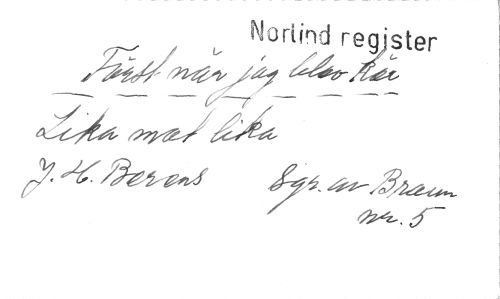 Norlind register
Först när jag blev kär
Lika mot lika
J. H. Berens Sgr. av Braun
nr. 5